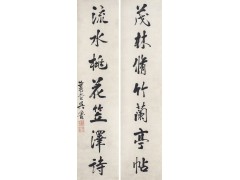 茂林脩竹蘭亭帖
流水桃花笠澤詩